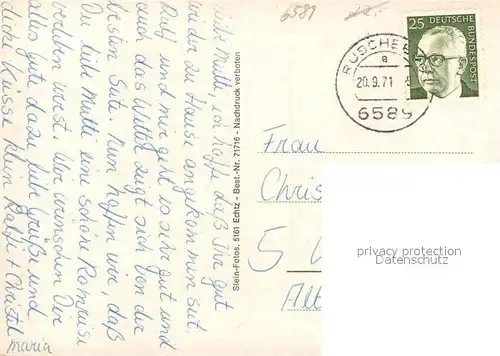 Liebe Mutti ich hoffe daß Ihr gut
wieder zu Hause angekommen seit.
Ralf und mir geht es sehr gut und
auch das Wetter zeigt sich von der
besten Seite. Nun hoffen wir, daß
Du liebe Mutti eine schöne Romreise
erleben wirst. Wir wünschen Dir
alles gute dazu. Liebe Grüße und
dicke Küsse klein Ralfi + Christel
Maria
Stein-Fotos, 5161 Echtz - Best.-Nr. 71716 - Nachdruck verboten
6589
RUSCHBE
a
20.9.71
6589
25 DEUTSCHE
BUNDESPOST
Frau
Chris
5
Alt
privacy protection
Datenschutz